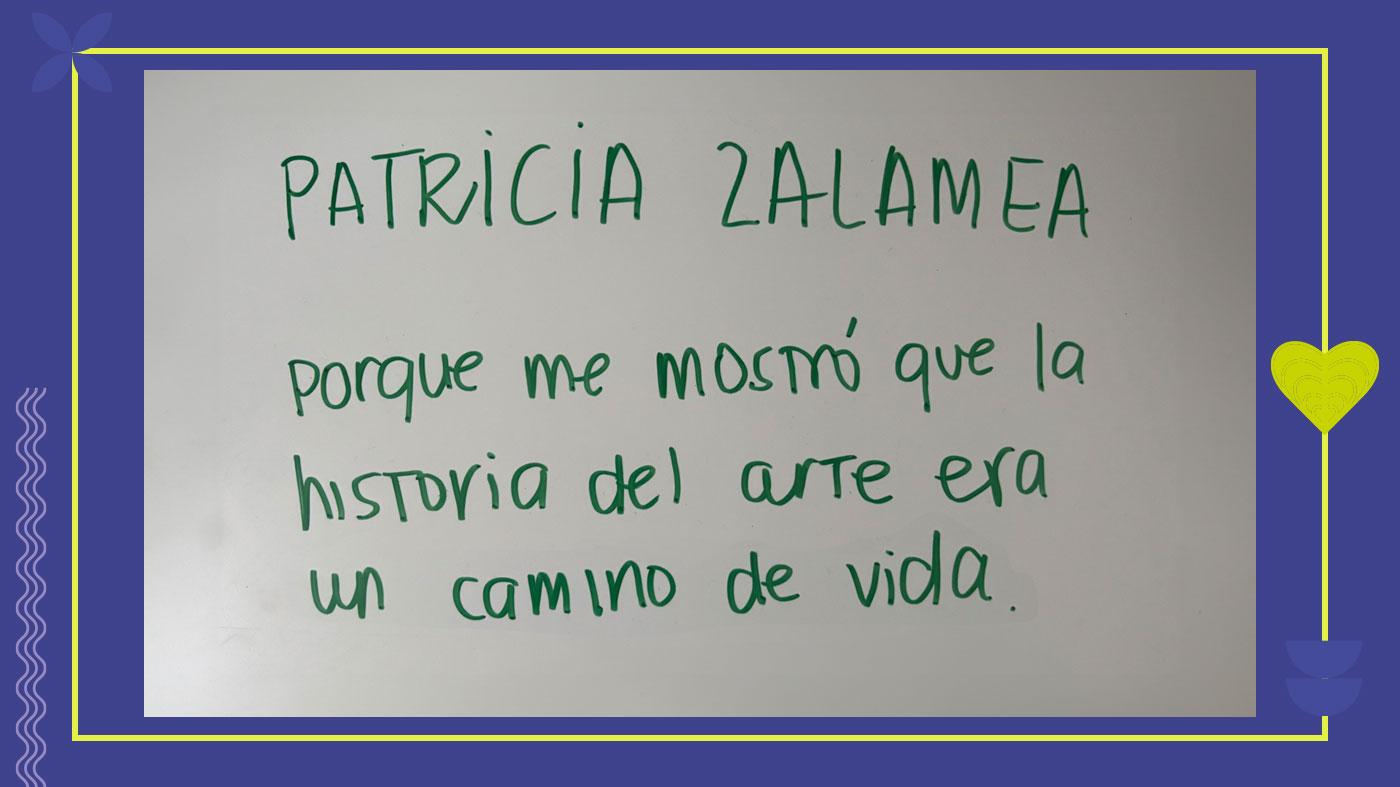 PATRICIA ZALAMEA
porque me mostró que la
historia del arte era
un camino de vida.